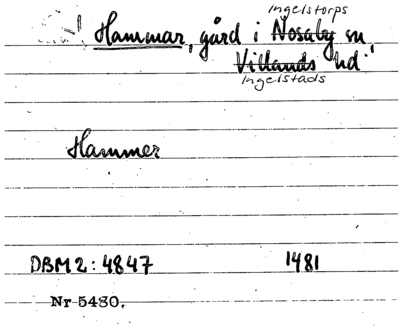 Ingelstorps
Hammar, gård i Nosaby sn,
Villands hd
Ingelstads
Hammer
DBM 2:4847 1481
Nr 5480.